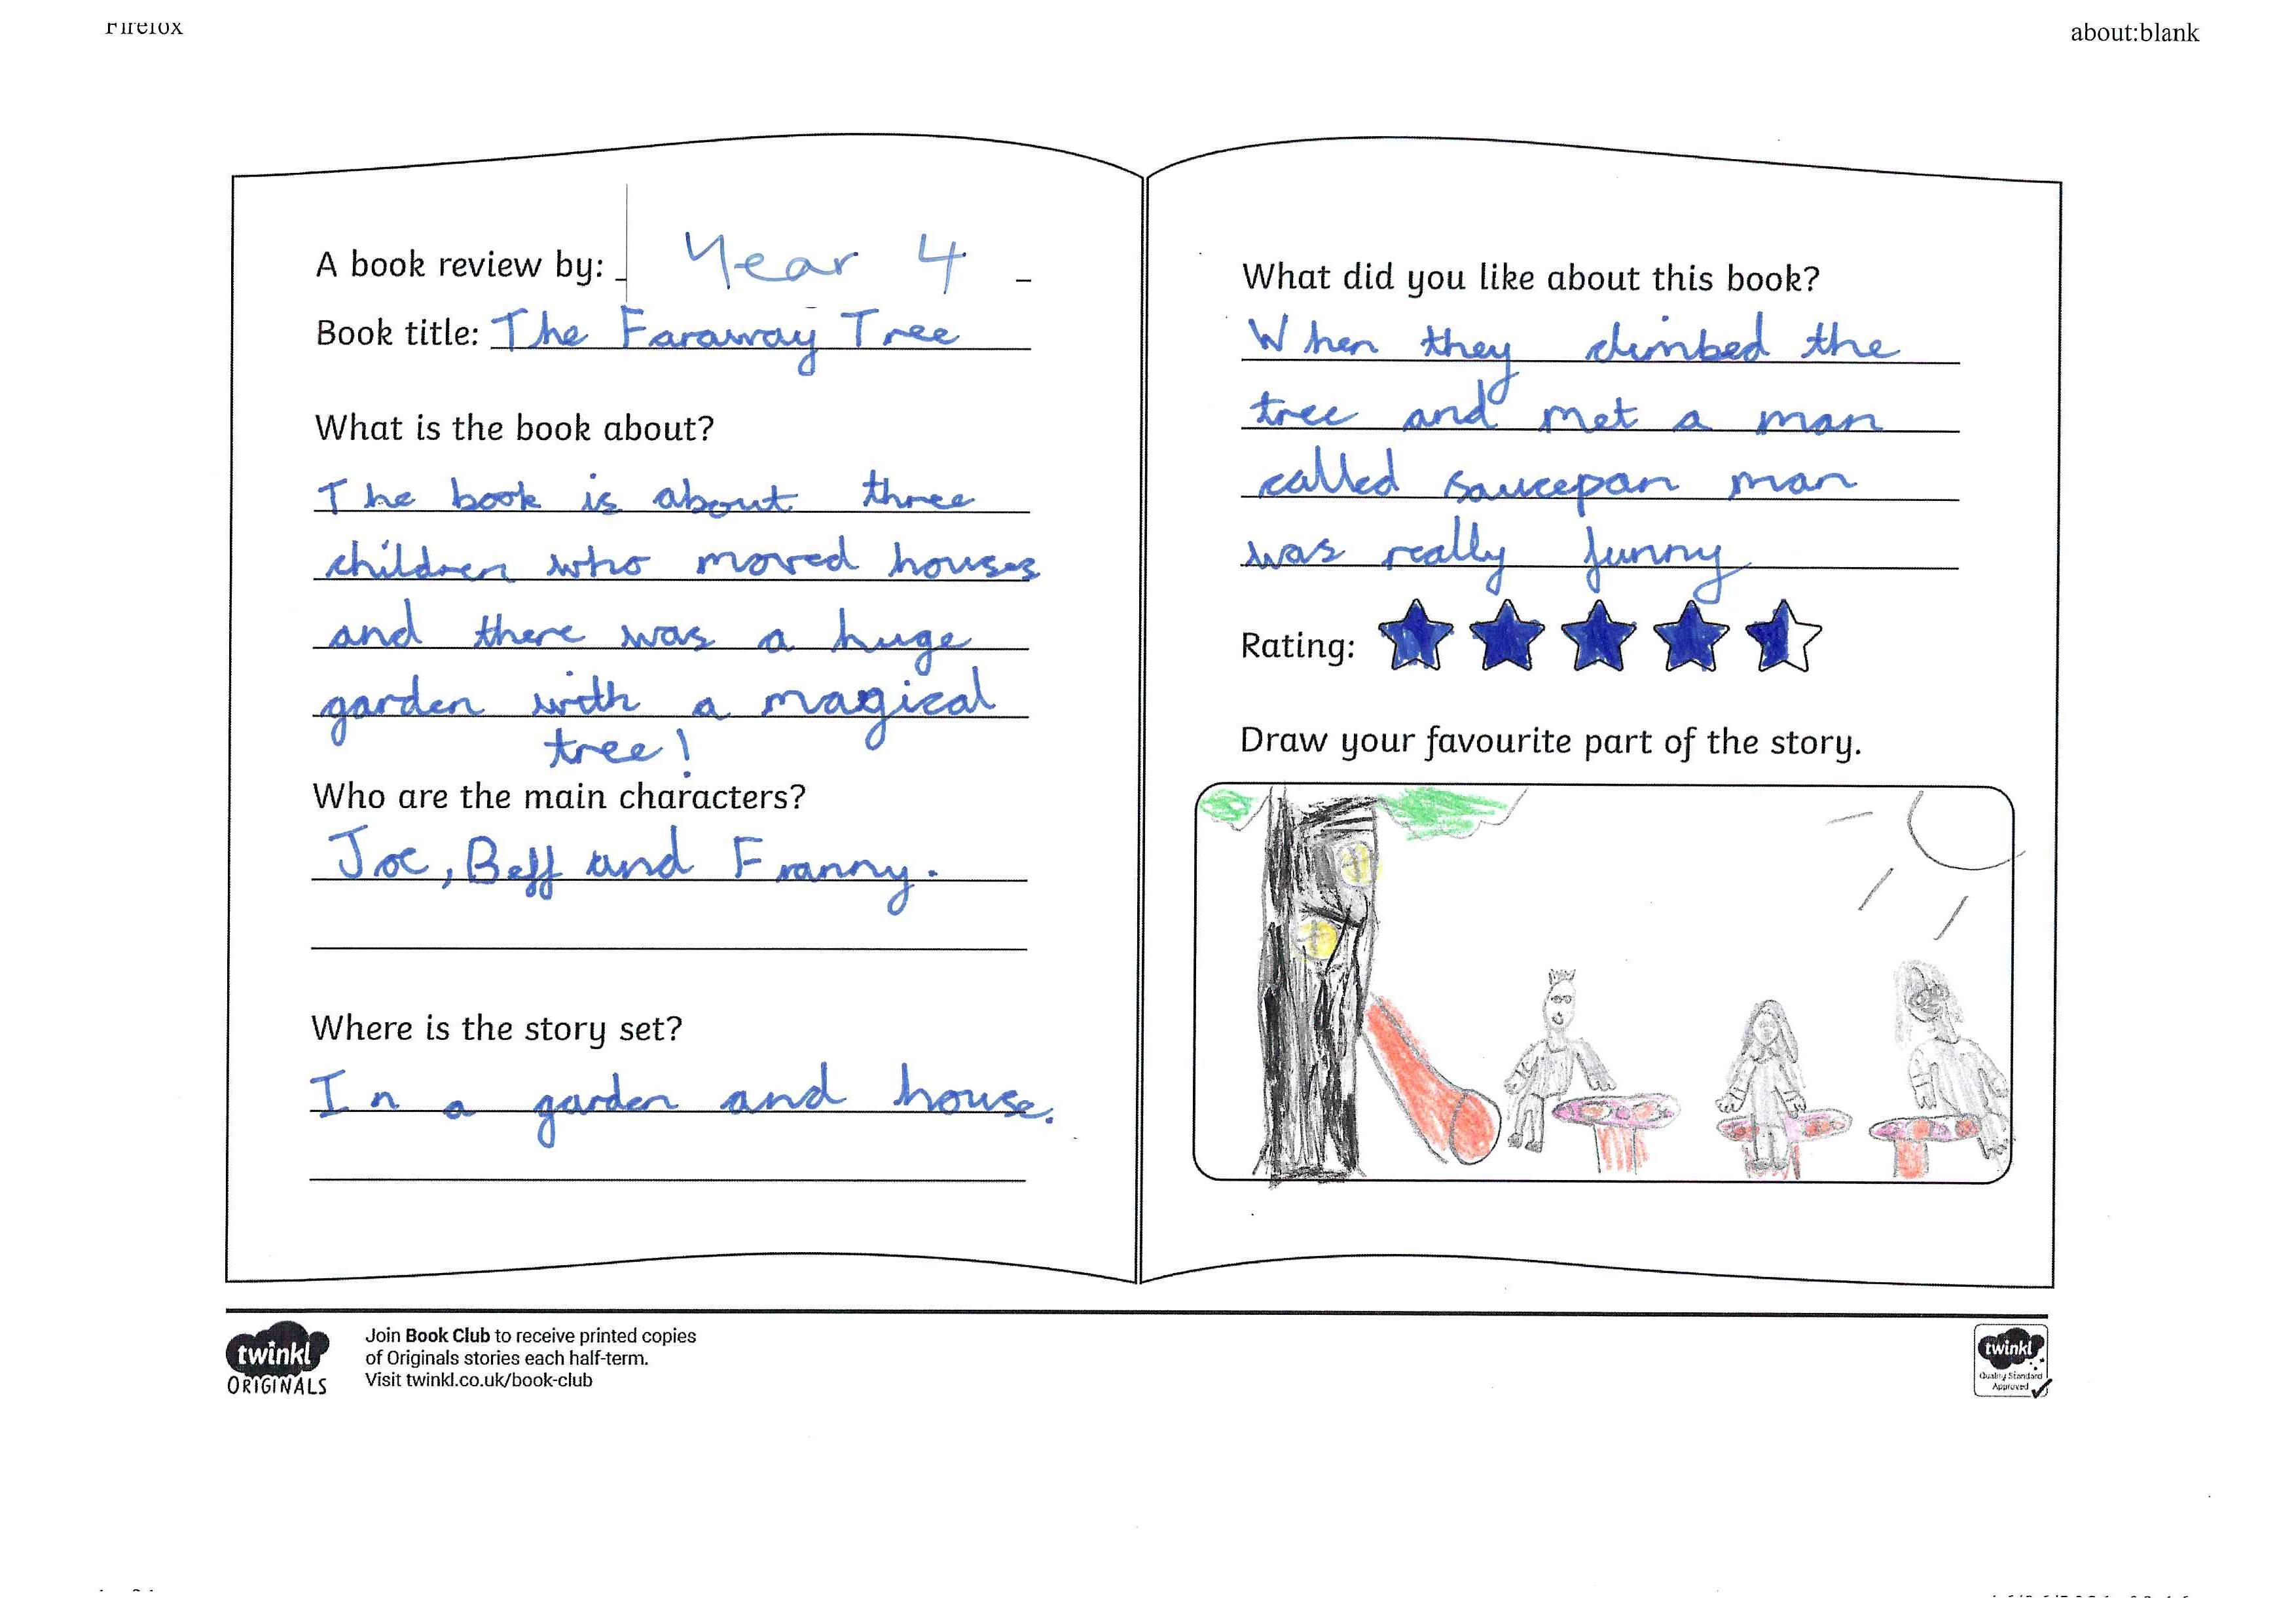 Firefox
about:blank
A book review by: Year 4
Book title: The Faraway Tree
What is the book about?
The book is about three
children who moved houses
and there was a huge
garden with a magical
tree!
Who are the main characters?
Joe, Beff and Franny.
Where is the story set?
In a garden and house.
What did you like about this book?
When they climbed the
tree and met a man
called saucepan man
was really funny
Rating:
Draw your favourite part of the story.
twinkl
ORIGINALS
Join Book Club to receive printed copies
of Originals stories each half-term.
Visit twinkl.co.uk/book-club
twinkl
Quality Standard
Approved